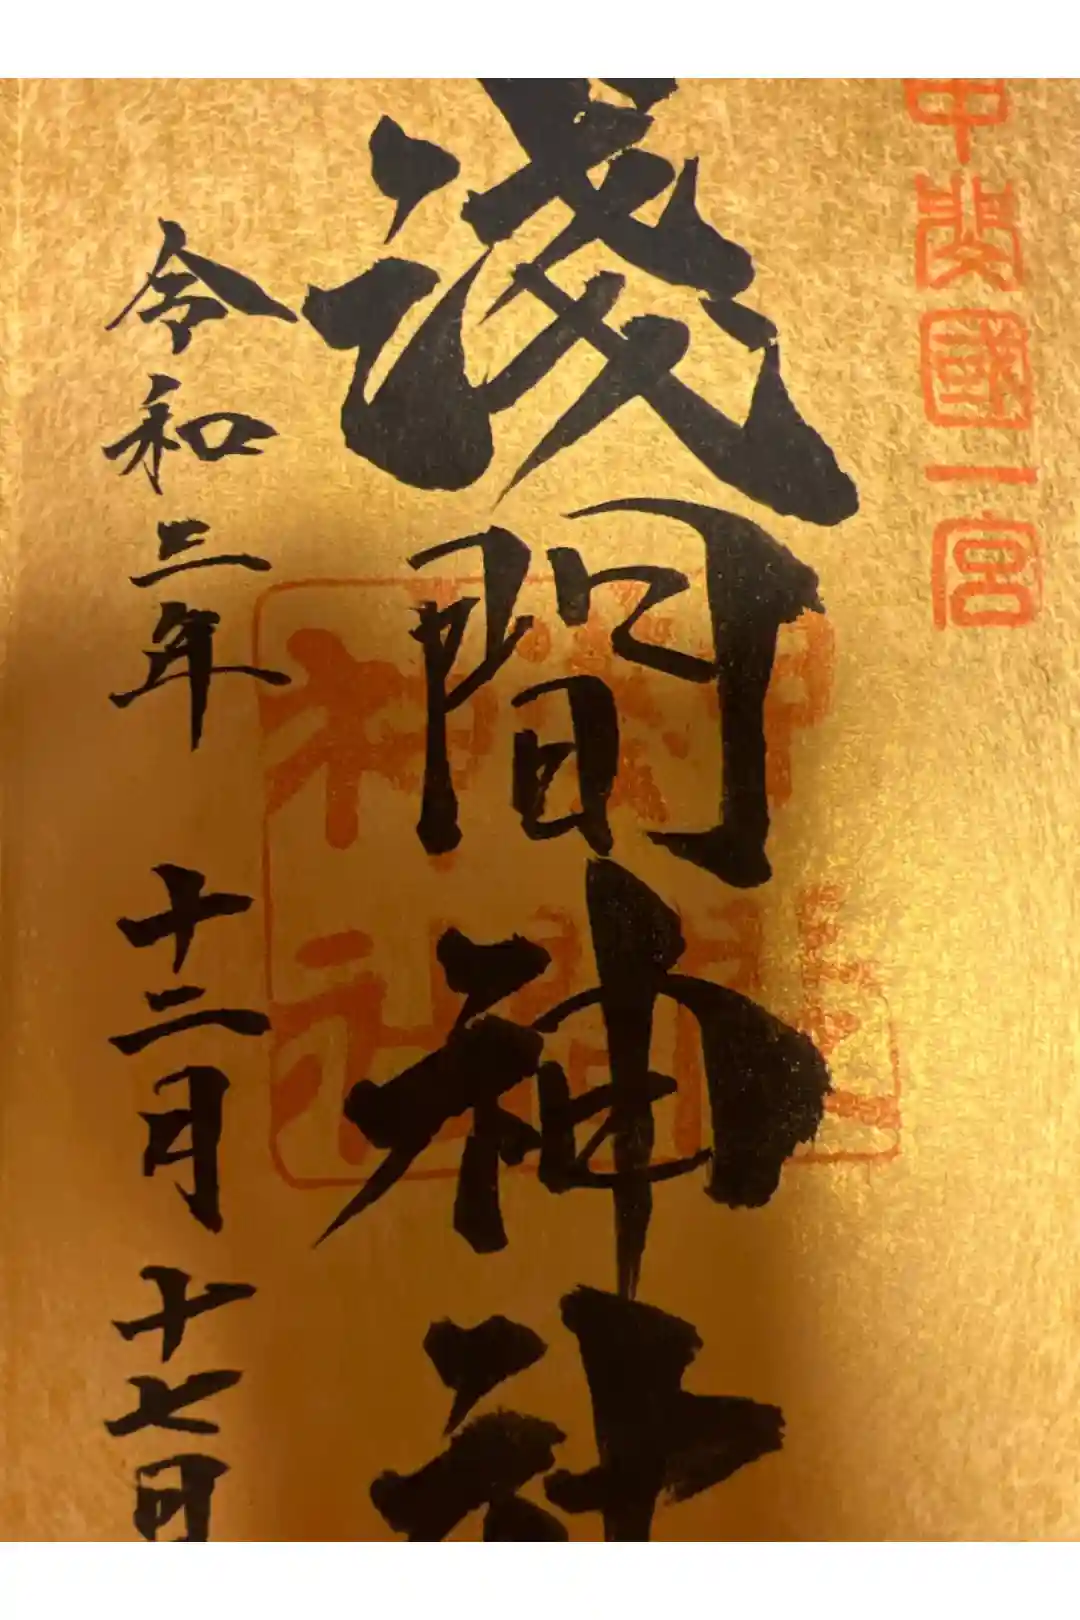 甲斐國一宮
淺間神社
令和三年 十二月 十七日